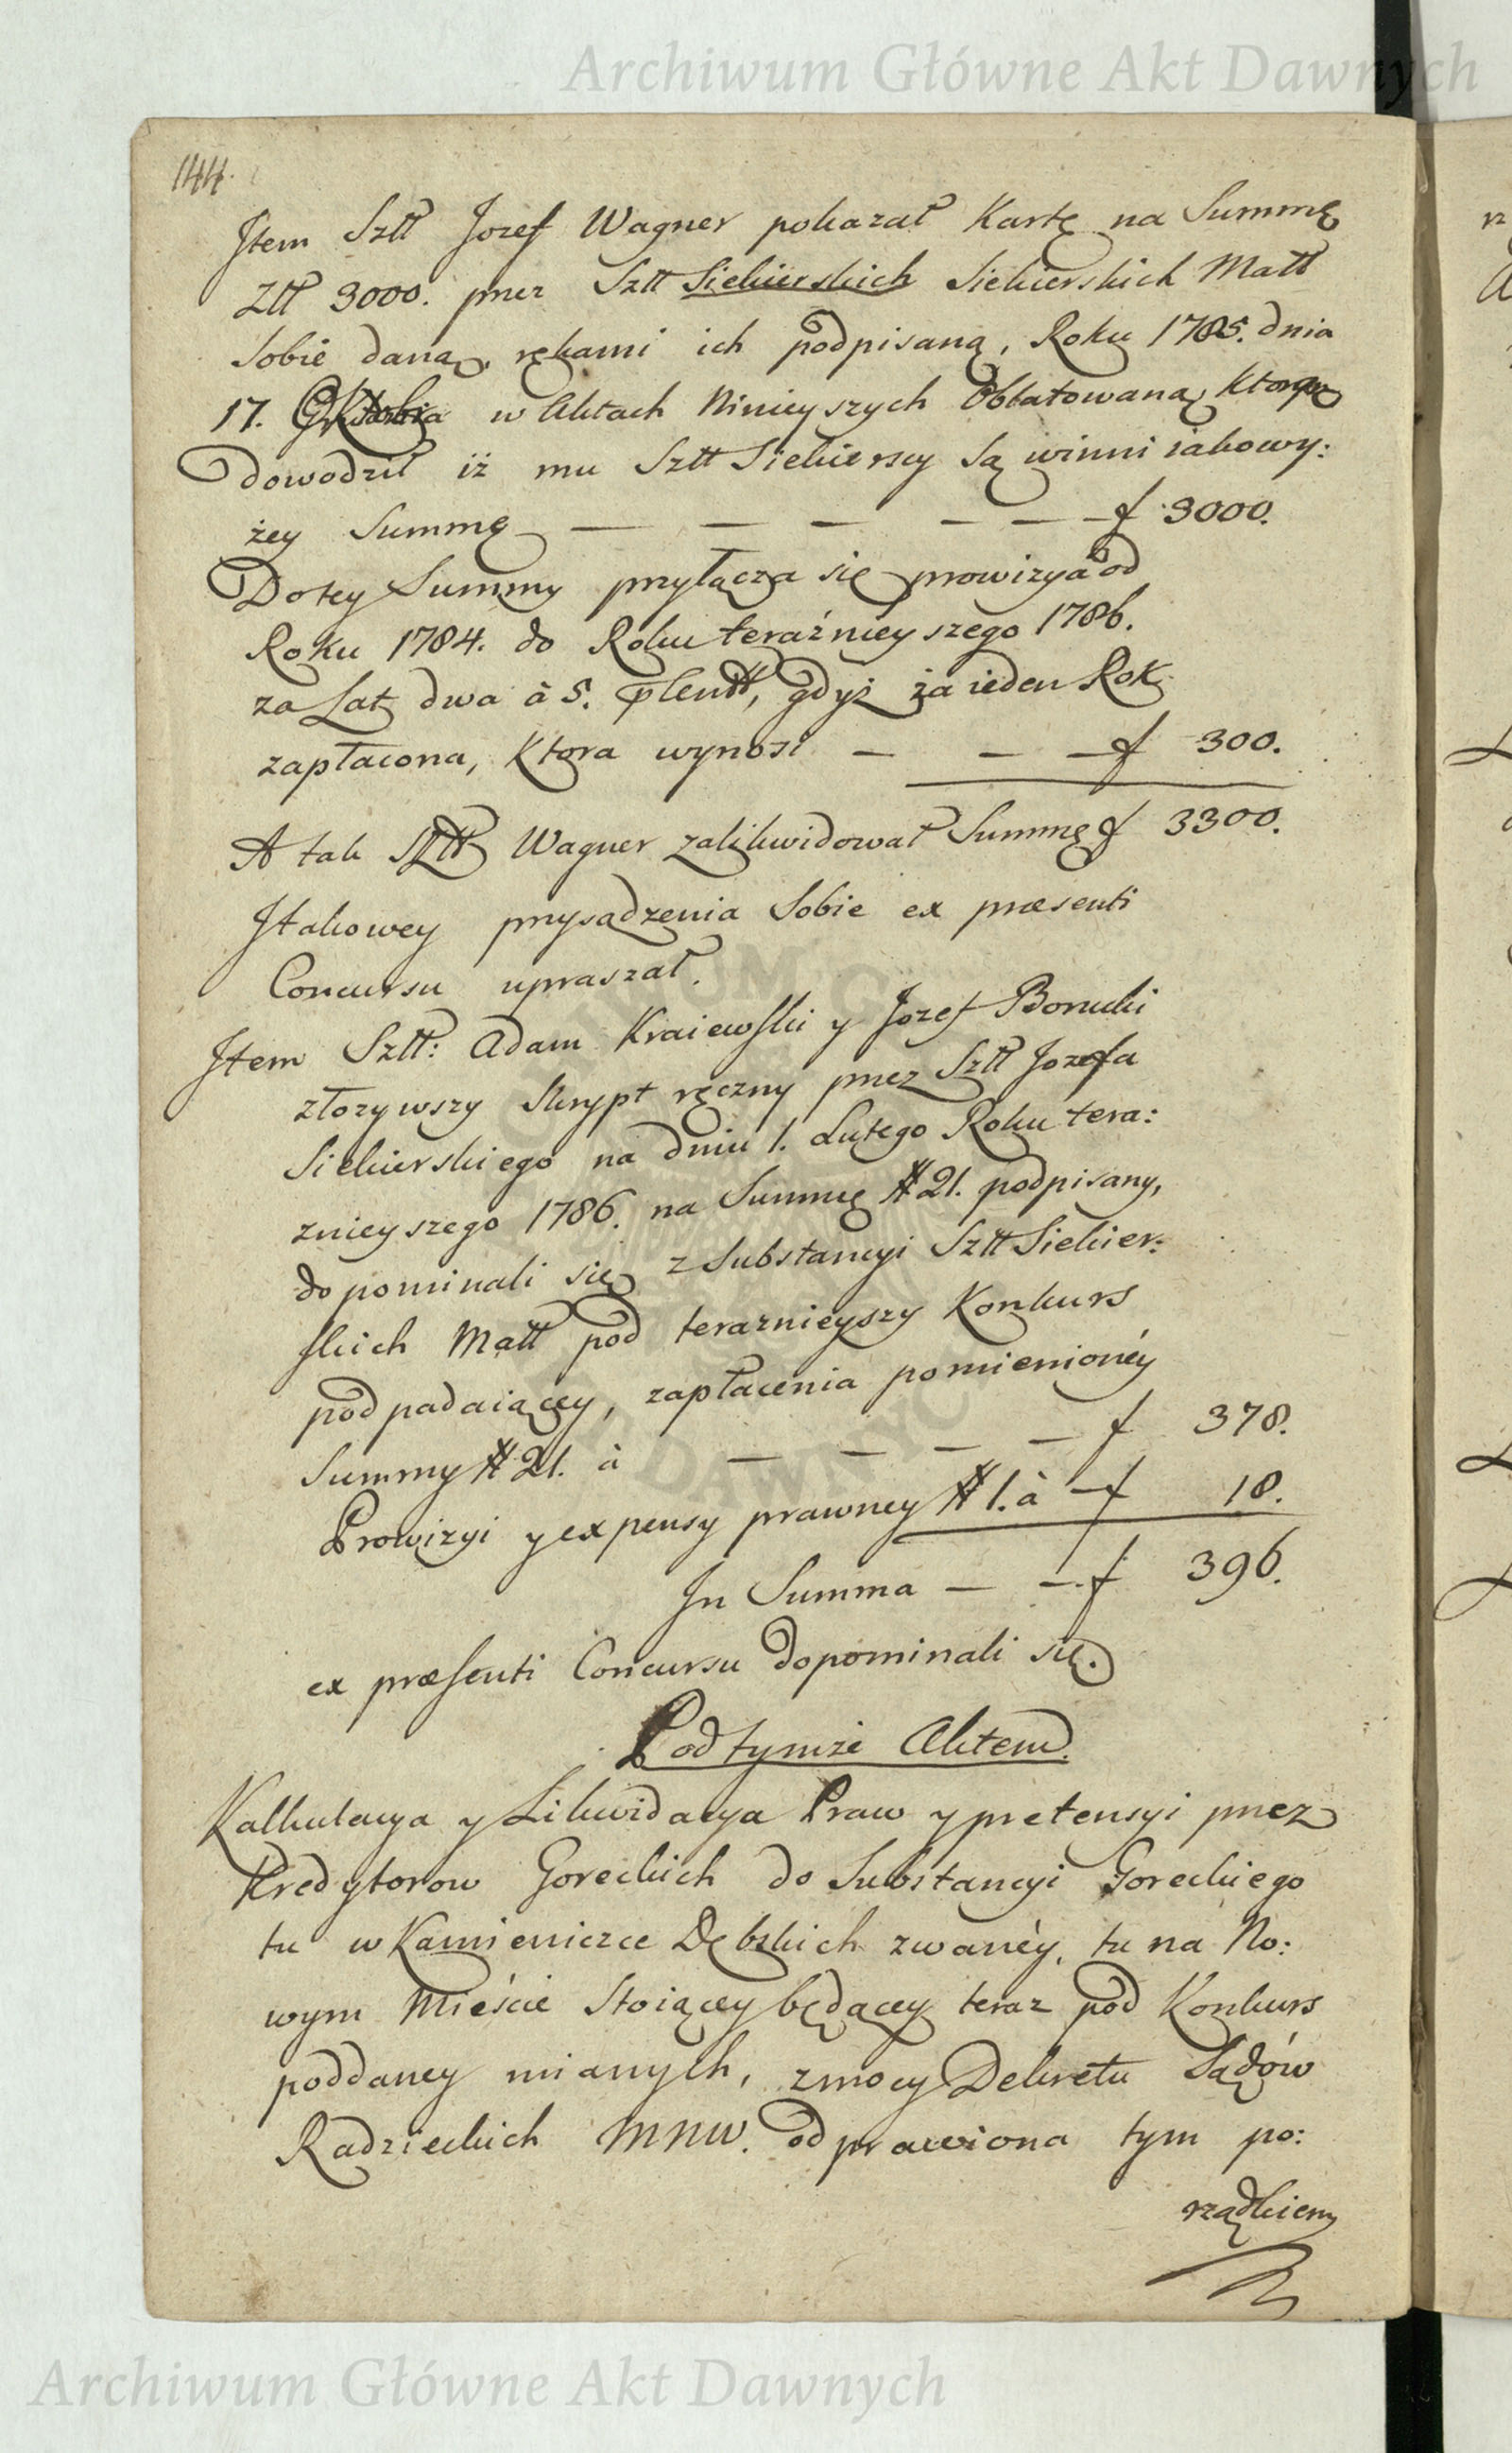 Archiwum Główne Akt Dawnych
144.
Item Sztt Jozef Wagner pokazał Kartę na Summę
Ztt 3000. przez Sztt Siekierskich Siekierskich Matt
Sobie daną, rękami ich podpisaną, Roku 1785. dnia
17. w Aktach Ninieyszych Oblatowaną
dowodził iż mu Sztt Siekierscy Są winni iakowy:
żey Summę — — — — — — f 3000.
Do tey Summy przyłącza się prowizya od
Roku 1784. do Roku teraźnieyszego 1786.
za Lat dwa à 5. gdyż za ieden Rok
zapłacona, Ktora wynosi — — — f 300.
A tak Sztt Wagner zalikwidował Summę f 3300.
Itakowey przysądzenia Sobie ex præsenti
Concursu upraszał.
Item Sztt: Adam Kraiewski y Jozef Bonucki
złożywszy Skrypt ręczny przez Sztt Jozefa
Siekierskiego na dniu 1. Lutego Roku tera:
znieyszego 1786. na Summę # 21. podpisany,
dopominali się z Substancyi Sztt Siekier:
skich Matt pod teraznieyszy Konkurs
podpadaiącey, zapłacenia pomienionéy
Summy # 21. à — — — — f 378.
Prowizyi y expensy prawney # 1. à — f 18.
In Summa — — f 396.
ex præsenti Concursu dopominali się.
Pod tymże Aktem.
Kalkulacya y Likwidacya Praw y pretensyi przez
Kredytorow Goreckich do Substancyi Goreckiego
tu w Kamieniczce Dębskich zwanéy, tu na No:
wym Mieście Stoiącey będącey teraz pod Konkurs
poddaney mianych, z mocy Dekretu Sądów
Radzieckich MNW. odprawiona tym po:
rządkiem
Archiwum Główne Akt Dawnych